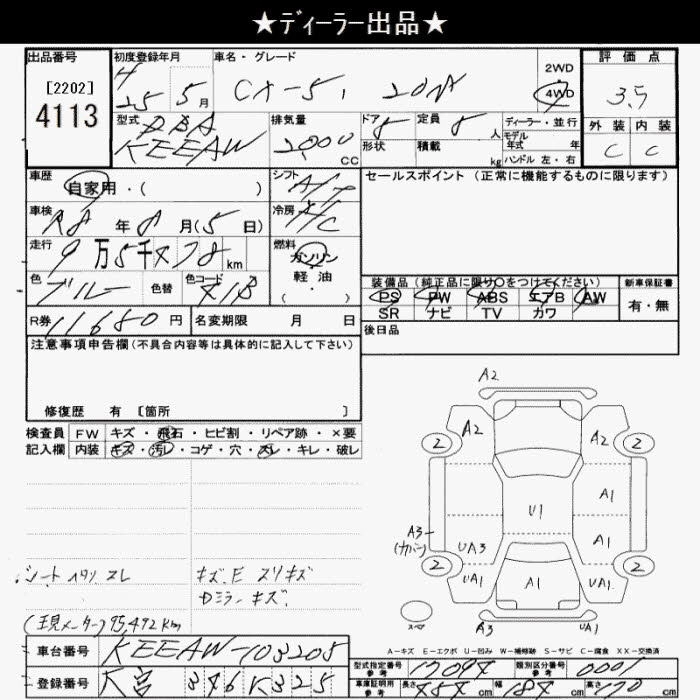 ★ディーラー出品★
出品番号 初度登録年月 車名・グレード 2WD 評価点
[2202] H 25 5月 CX-5, 20 4WD 3.5
4113 型式 DBA 排気量 ドア 定員 8人 ディーラー・並行 外装 内装
KEEAW 2,000 CC 形状 積載 kg モデル年式 年 C C
ハンドル 左・右
車歴 自家用・( ) シフト A/T セールスポイント (正常に機能するものに限ります)
車検 R8年8月(5日) 冷房 A/C
走行 9万5千478km 燃料 ガソリン
色 ブルー 色替 色コード 軽・油
( ・ ) 装備品 (純正品に限り○をつけてください) 新車保証書
PS PW ABS エアB AW 有・無
SR ナビ TV カワ
R券 11680円 名変期限 月 日 後日品
注意事項申告欄(不具合内容等は具体的に記入して下さい)
修復歴 有 [箇所 ]
検査員 FW キズ・飛石・ヒビ割・リペア跡・×要
記入欄 内装 キズ・汚・コゲ・穴・スレ・キレ・破レ
A2
2 A2 A2 2
A1
U1
A3
(カバー) UA3 A1
2 UA1 A1 UA1 2
シート ヘタリ スレ キズ.E スリキズ
ミラーキズ.
(現メーター)95,492km
スペア A3 UA1
A-キズ E-エクボ U-凹み W-補修跡 S-サビ C-腐食 XX-交換済
車台番号 KEEAW-103208
型式指定番号 参考 類別区分番号 参考 0001
登録番号 346 325
車庫証明用 参考 長さ 454cm 幅 184cm 高さ 170cm